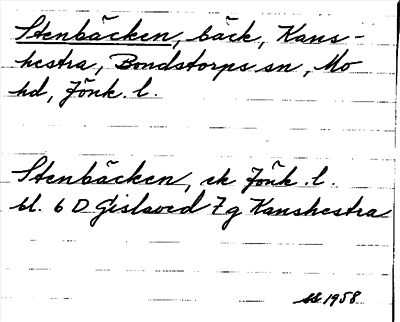 Stenbäcken, bäck, Kans-
hestra, Bondstorps sn, Mo
hd, Jönk. l.
Stenbäcken, ek Jönk. l.
bl. 6 D Gislaved 7g Kanshestra
1958